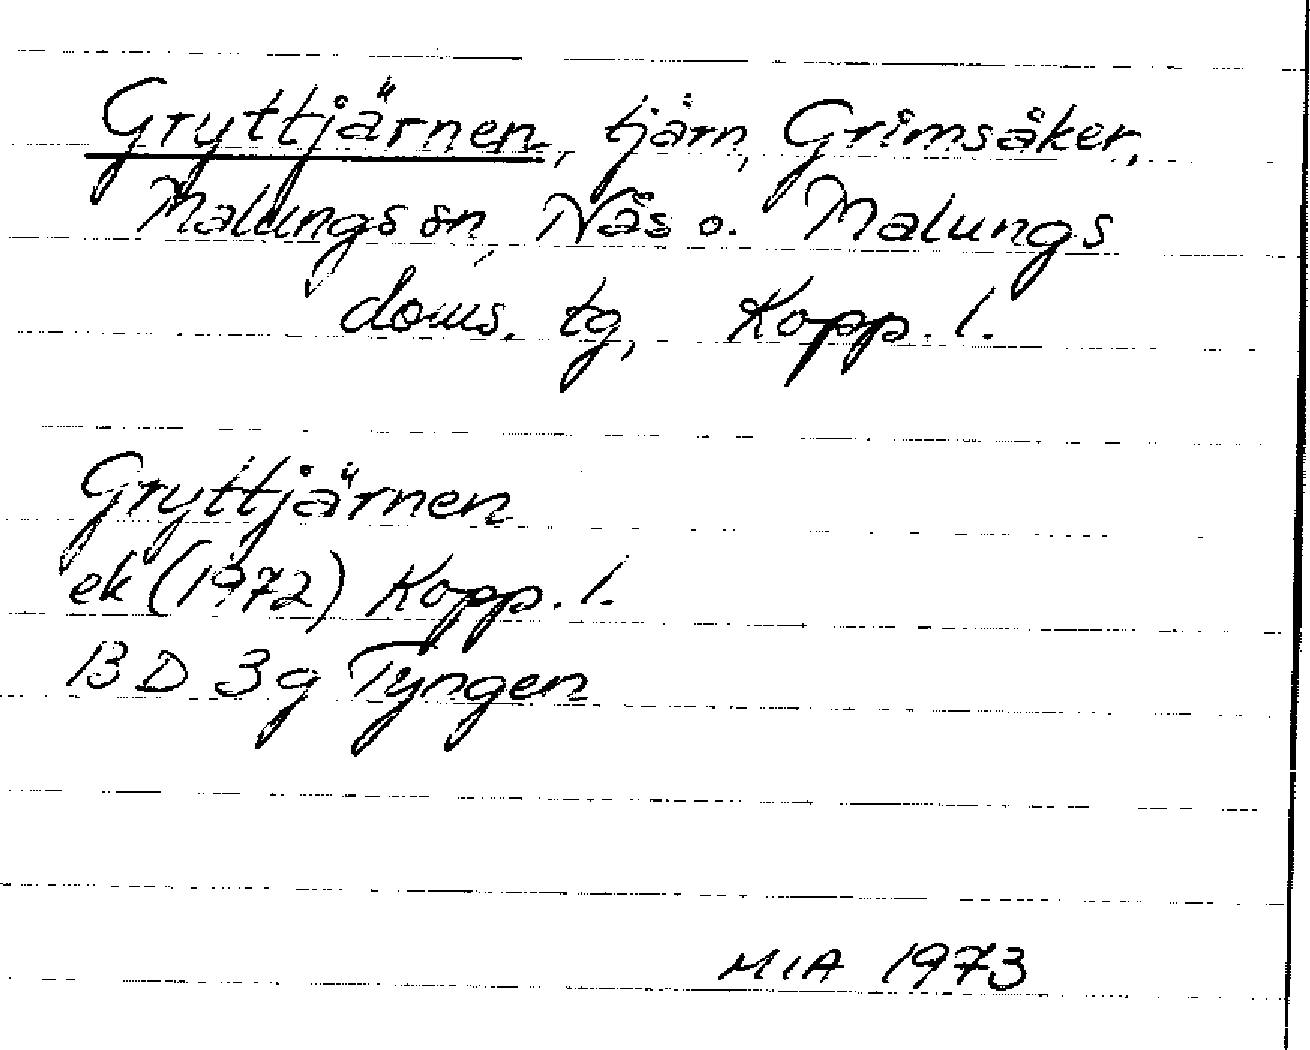 Gryttjärnen, tjärn, Grimsåker,
Malungs sn, Näs o. Malungs
doms. tg, Kopp. l.
Gryttjärnen
ek (1972) Kopp. l.
13 D 3g Tyngen
MIA 1973